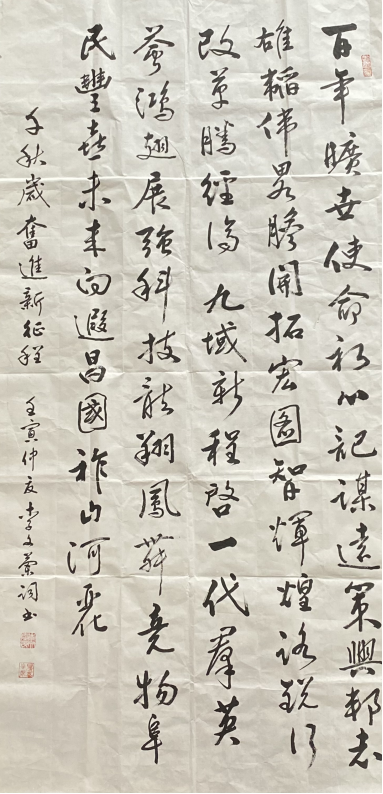 百年曠世使命初心記謀遠策興邦志
雄韜偉略瞻開拓宏圖智輝煌路銳行
改革騰經濟九域新程啓一代羣英
薈鴻翅展強科技龍翔鳳舞堯物阜
民豐喜未來向遐昌國祚山河麗
千秋歲奮進新征程
壬寅仲夏李文蘭词书